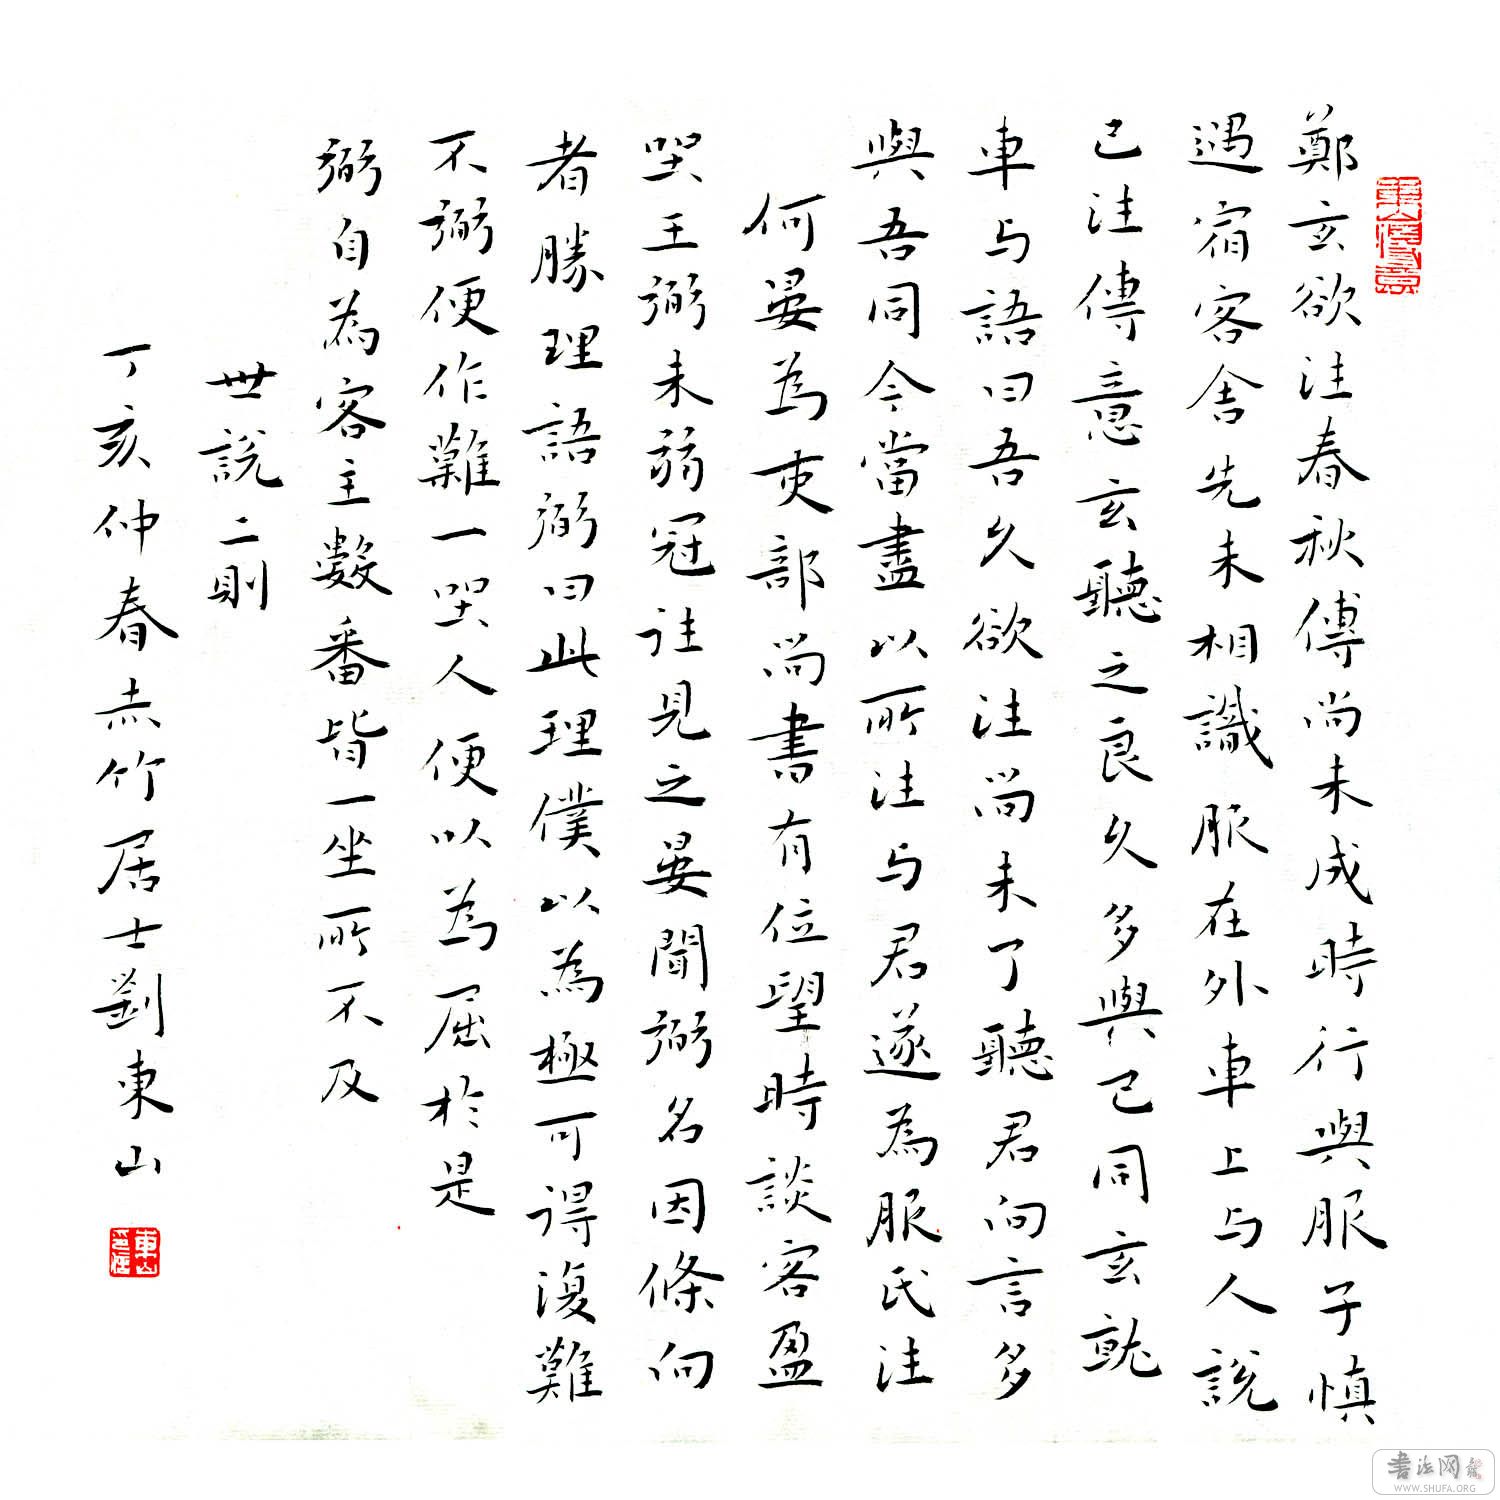 鄭玄欲注春秋傳尚未成時行與服子慎
遇宿客舍先未相識服在外車上与人說
已注傳意玄聽之良久多與已同玄就
車与語曰吾久欲注尚未了聽君向言多
與吾同今當盡以所注与君遂為服氏注
何晏為吏部尚書有位望時談客盈
坐王弼未弱冠往見之晏聞弼名因條向
者勝理語弼曰此理僕以為極可得復難
不弼便作難一坐人便以為屈於是
弼自為客主數番皆一坐所不及
世說二則
丁亥仲春赤竹居士劉東山
東山
书法网
WWW.SHUFA.ORG